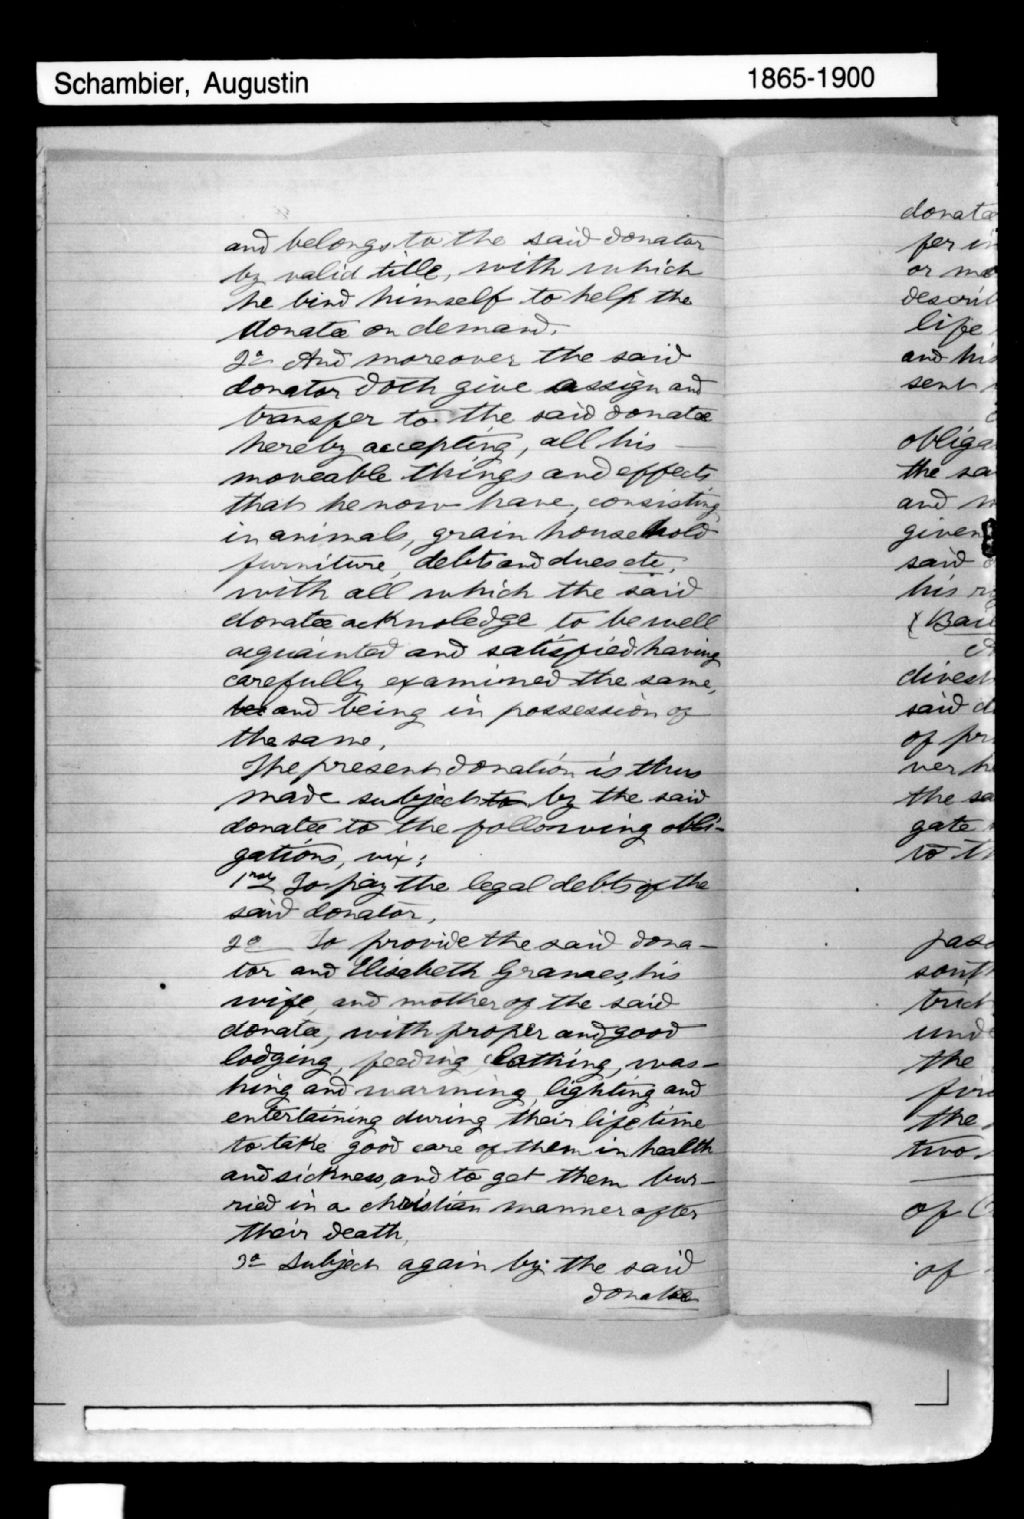 Schambier, Augustin 1865-1900
and belongs to the said donator
by valid title, with which
he bind himself to help the
donatee on demand.
2o And moreover the said
donator doth give assign and
transfer to the said donatee
hereby accepting, all his
moveable things and effects
that he now have, consisting
in animals, grain household
furniture, debts and dues etc,
with all which the said
donatee acknoledge to be well
acquainted and satisfied having
carefully examined the same,
and being in possession of
the same.
The present donation is thus
made subject to by the said
donatee to the following obli-
gations, vix:
1rst To pay the legal debts of the
said donator.
2o To provide the said dona-
tor and Elisabeth his
wife, and mother of the said
donatee, with proper and good
lodging, feeding, clothing, was-
hing and warming, lighting and
entertaining during their life time
to take good care of them in health
and sickness, and to get them bur-
ried in a christian manner after
their death,
3o Subject again by the said
donatee
donatee
fer in
or mo
describ
life
and his
sent
obliga
the sa
and m
given
said
his
(Bail
divest
said d
of pr
ver h
the sa
gate
to th
sout
trict
unde
the
firs
the
two
of C
of